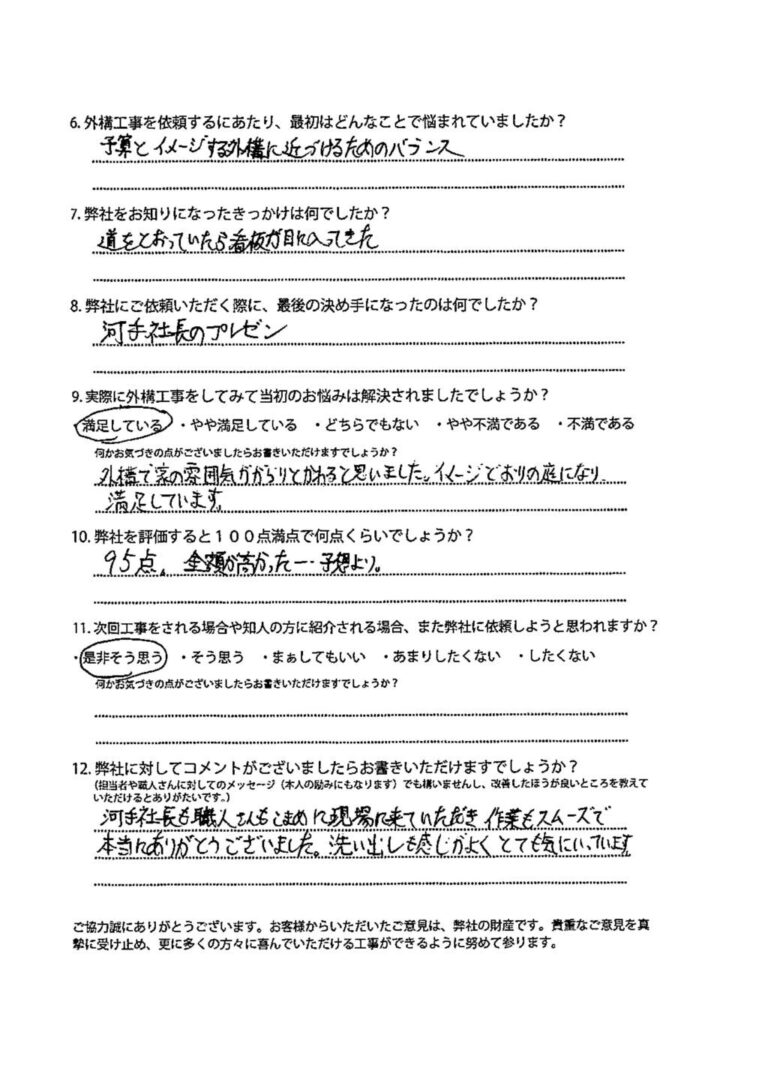 6. 外構工事を依頼するにあたり、最初はどんなことで悩まれていましたか？
予算とイメージする外構に近づけるためのバランス
7. 弊社をお知りになったきっかけは何でしたか？
道をとおっていたら看板が目に入ってきた
8. 弊社にご依頼いただく際に、最後の決め手になったのは何でしたか？
河手社長のプレゼン
9. 実際に外構工事をしてみて当初のお悩みは解決されましたでしょうか？
・満足している ・やや満足している ・どちらでもない ・やや不満である ・不満である
何かお気づきの点がございましたらお書きいただけますでしょうか？
外構で家の雰囲気ががらりとかわると思いました。イメージどおりの庭になり
満足しています。
10. 弊社を評価すると１００点満点で何点くらいでしょうか？
95点。金額が高かった…予想より。
11. 次回工事をされる場合や知人の方に紹介される場合、また弊社に依頼しようと思われますか？
・是非そう思う ・そう思う ・まぁしてもいい ・あまりしたくない ・したくない
何かお気づきの点がございましたらお書きいただけますでしょうか？
12. 弊社に対してコメントがございましたらお書きいただけますでしょうか？
（担当者や職人さんに対してのメッセージ（本人の励みにもなります）でも構いませんし、改善したほうが良いところを教えて
いただけるとありがたいです。）
河手社長も職人さんもこまめに現場に来ていただき 作業もスムーズで
本当にありがとうございました。洗い出しも感じがよく とても気にいっています
ご協力誠にありがとうございます。お客様からいただいたご意見は、弊社の財産です。貴重なご意見を真
摯に受け止め、更に多くの方々に喜んでいただける工事ができるように努めて参ります。